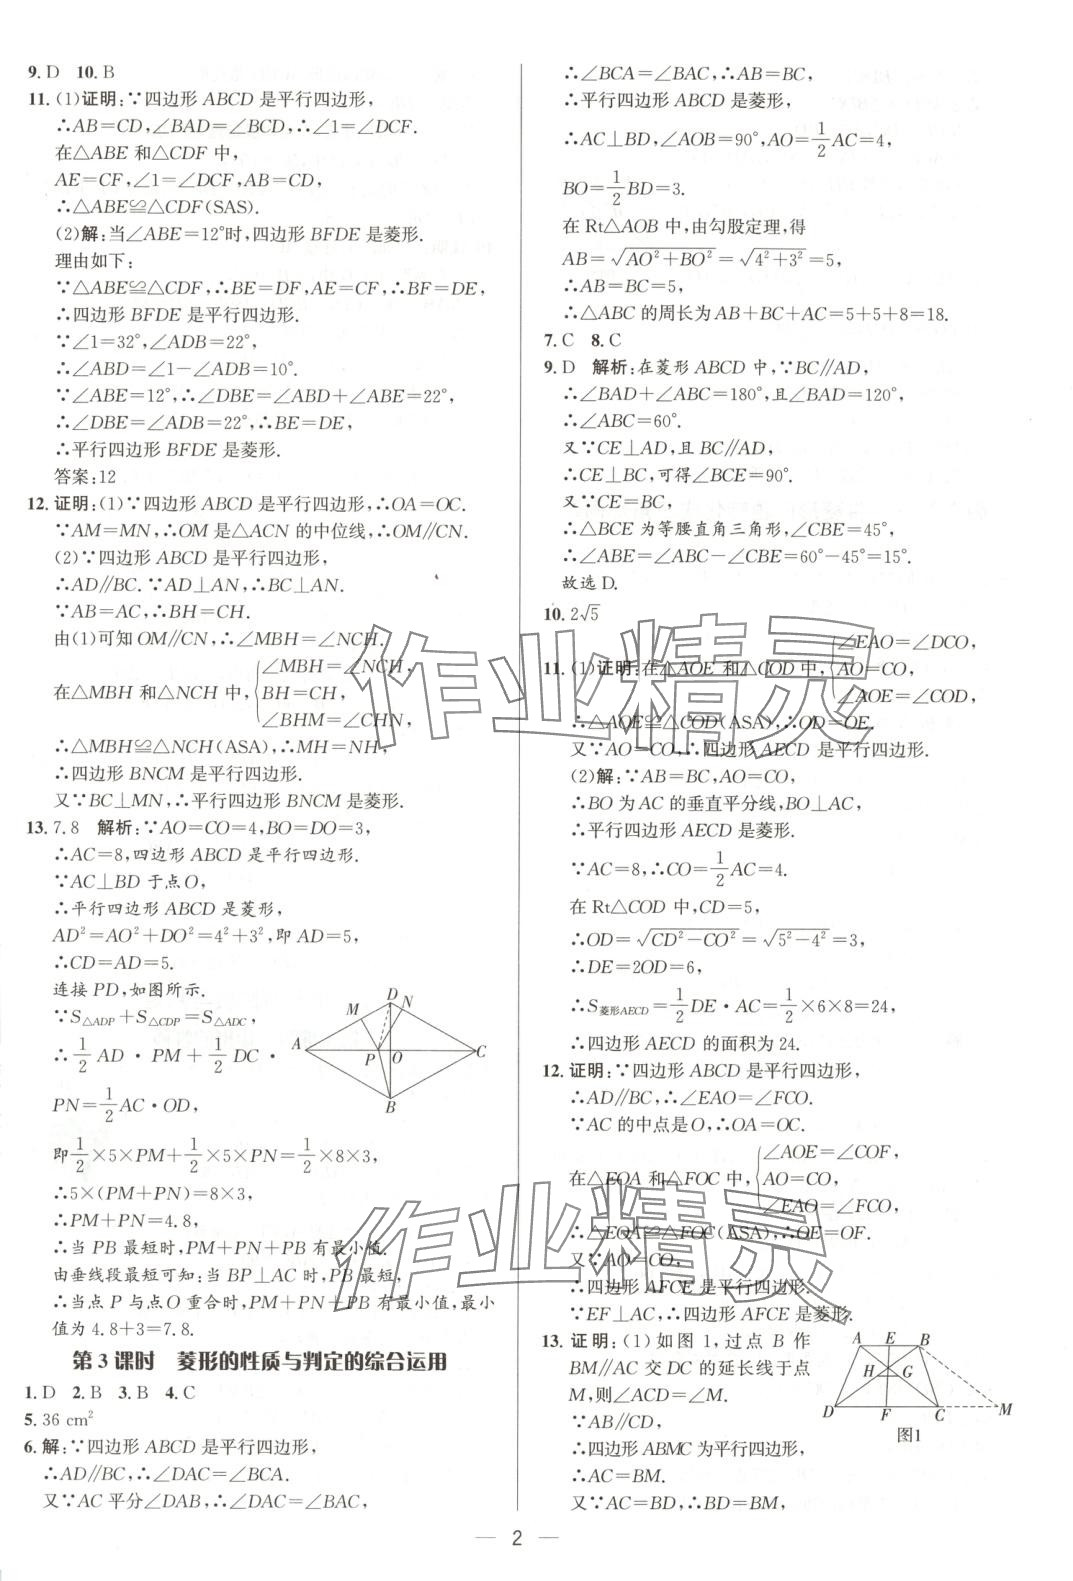 9. D 10. B
11. (1)证明:∵四边形ABCD是平行四边形,
∴AB=CD,∠BAD=∠BCD,∴∠1=∠DCF.
在△ABE和△CDF中,
AE=CF,∠1=∠DCF,AB=CD,
∴△ABE≌△CDF(SAS).
(2)解:当∠ABE=12°时,四边形BFDE是菱形.
理由如下:
∵△ABE≌△CDF,∴BE=DF,AE=CF,∴BF=DE,
∴四边形BFDE是平行四边形.
∵∠1=32°,∠ADB=22°,
∴∠ABD=∠1-∠ADB=10°.
∵∠ABE=12°,∴∠DBE=∠ABD+∠ABE=22°,
∴∠DBE=∠ADB=22°,∴BE=DE,
∴平行四边形BFDE是菱形.
答案:12
12. 证明:(1)∵四边形ABCD是平行四边形,∴OA=OC.
∵AM=MN,∴OM是△ACN的中位线,∴OM∥CN.
(2)∵四边形ABCD是平行四边形,
∴AD∥BC.∵AD⊥AN,∴BC⊥AN.
∵AB=AC,∴BH=CH.
由(1)可知OM∥CN,∴∠MBH=∠NCH.
在△MBH和△NCH中,{∠MBH=∠NCH,
BH=CH,
∠BHM=∠CHN,
∴△MBH≌△NCH(ASA),∴MH=NH,
∴四边形BNCM是平行四边形.
又∵BC⊥MN,∴平行四边形BNCM是菱形.
13. 7.8 解析:∵AO=CO=4,BO=DO=3,
∴AC=8,四边形ABCD是平行四边形.
∵AC⊥BD于点O,
∴平行四边形ABCD是菱形,
AD²=AO²+DO²=4²+3²,即AD=5,
∴CD=AD=5.
连接PD,如图所示.
∵S△ADP+S△CDP=S△ADC,
∴1/2 AD·PM+1/2 DC·
PN=1/2 AC·OD,
M D N
A P O C
B
即1/2×5×PM+1/2×5×PN=1/2×8×3,
∴5×(PM+PN)=8×3,
∴PM+PN=4.8,
∴当PB最短时,PM+PN+PB有最小值.
由垂线段最短可知:当BP⊥AC时,PB最短,
∴当点P与点O重合时,PM+PN+PB有最小值,最小
值为4.8+3=7.8.
第3课时 菱形的性质与判定的综合运用
1. D 2. B 3. B 4. C
5. 36 cm²
6. 解:∵四边形ABCD是平行四边形,
∴AD∥BC,∴∠DAC=∠BCA.
又∵AC平分∠DAB,∴∠DAC=∠BAC,
∴∠BCA=∠BAC,∴AB=BC,
∴平行四边形ABCD是菱形,
∴AC⊥BD,∠AOB=90°,AO=1/2 AC=4,
BO=1/2 BD=3.
在Rt△AOB中,由勾股定理,得
AB=√(AO²+BO²)=√(4²+3²)=5,
∴AB=BC=5,
∴△ABC的周长为AB+BC+AC=5+5+8=18.
7. C 8. C
9. D 解析:在菱形ABCD中,∵BC∥AD,
∴∠BAD+∠ABC=180°,且∠BAD=120°,
∴∠ABC=60°.
又∵CE⊥AD,且BC∥AD,
∴CE⊥BC,可得∠BCE=90°.
又∵CE=BC,
∴△BCE为等腰直角三角形,∠CBE=45°,
∴∠ABE=∠ABC-∠CBE=60°-45°=15°.
故选D.
10. 2√5
11. (1)证明:在△AOE和△COD中,{∠EAO=∠DCO,
AO=CO,
∠AOE=∠COD,
∴△AOE≌△COD(ASA),∴OD=OE.
又∵AO=CO,∴四边形AECD是平行四边形.
(2)解:∵AB=BC,AO=CO,
∴BO为AC的垂直平分线,BO⊥AC,
∴平行四边形AECD是菱形.
∵AC=8,∴CO=1/2 AC=4.
在Rt△COD中,CD=5,
∴OD=√(CD²-CO²)=√(5²-4²)=3,
∴DE=2OD=6,
∴S菱形AECD=1/2 DE·AC=1/2×6×8=24,
∴四边形AECD的面积为24.
12. 证明:∵四边形ABCD是平行四边形,
∴AD∥BC,∴∠EAO=∠FCO.
∵AC的中点是O,∴OA=OC.
在△EOA和△FOC中,{∠AOE=∠COF,
AO=CO,
∠EAO=∠FCO,
∴△EOA≌△FOC(ASA),∴OE=OF.
又∵AO=CO,
∴四边形AFCE是平行四边形.
∵EF⊥AC,∴四边形AFCE是菱形.
13. 证明:(1)如图1,过点B作
BM∥AC交DC的延长线于点
M,则∠ACD=∠M.
∵AB∥CD,
∴四边形ABMC为平行四边形,
∴AC=BM.
又∵AC=BD,∴BD=BM,
A E B
H G
D F C M
图1
作业精灵
作业精灵
2